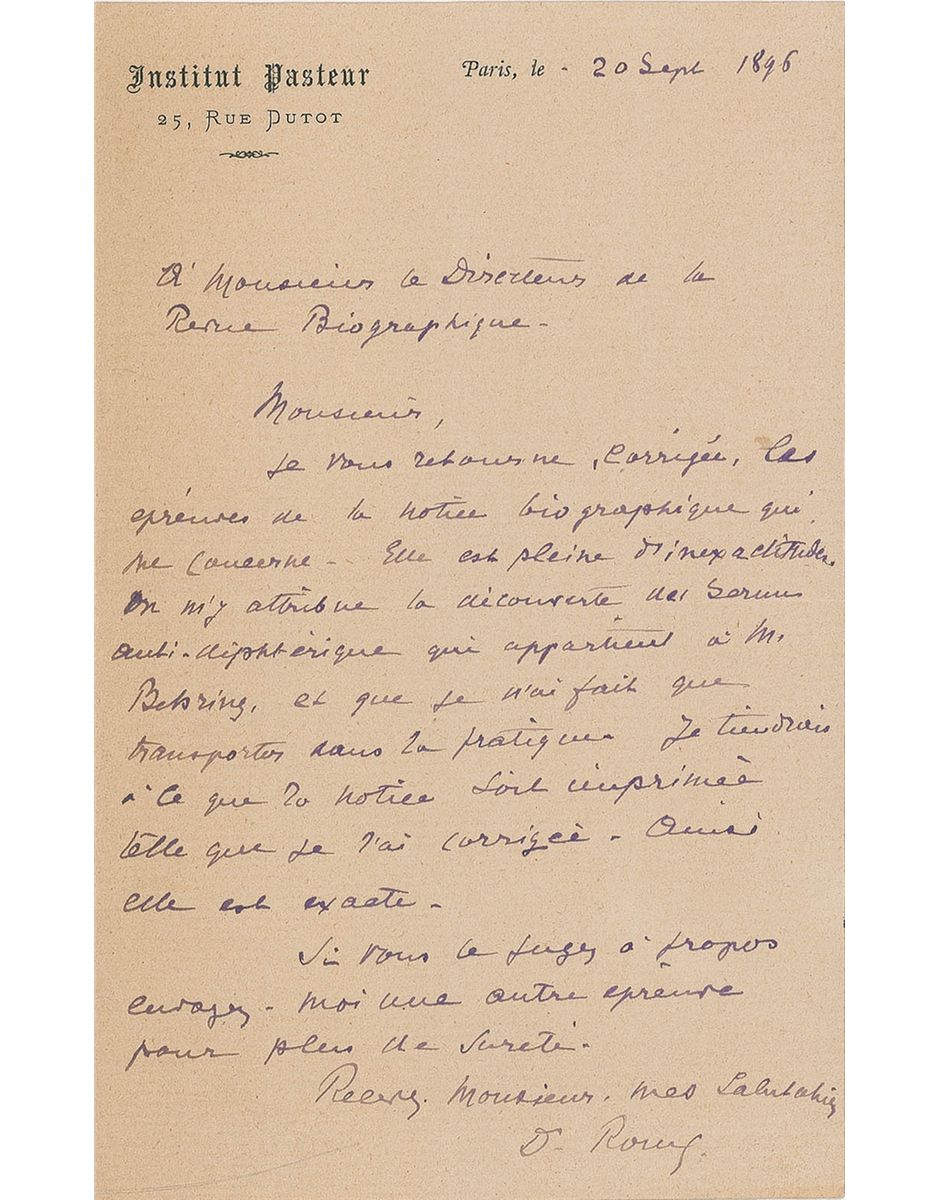 Institut Pasteur
25, Rue Dutot
Paris, le - 20 Sept 1896
A Monsieur le Directeur de la
Revue Biographique -
Monsieur,
Je vous retourne, corrigée, les
épreuves de la notice biographique qui
me concerne - Elle est pleine d'inexactitudes.
On m'y attribue la découverte du serum
anti-diphtérique qui appartient à M.
Behring, et que je n'ai fait que
transporter dans la pratique. Je tiendrais
à ce que la notice soit imprimée
telle que je l'ai corrigée - Ainsi
elle est exacte -
Si vous le jugez à propos
envoyez-moi une autre épreuve
pour plus de sureté.
Recevez, Monsieur, mes salutations
Dr Roux